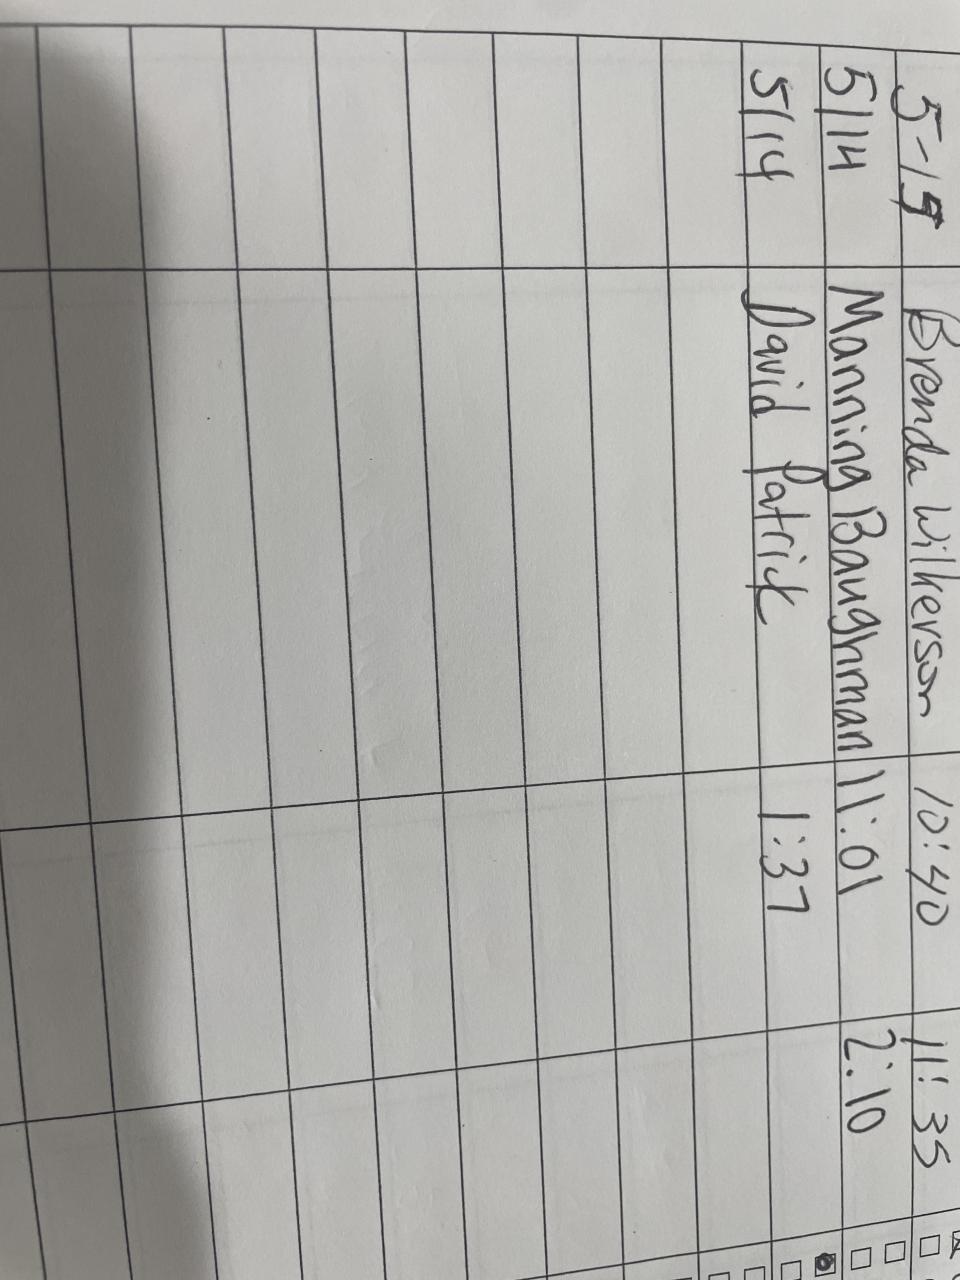 5-15 Brenda Wilkerson 10:40 11:35
5/14 Manning Baughman 11:01 2:10
5/14 David Patrick 1:37